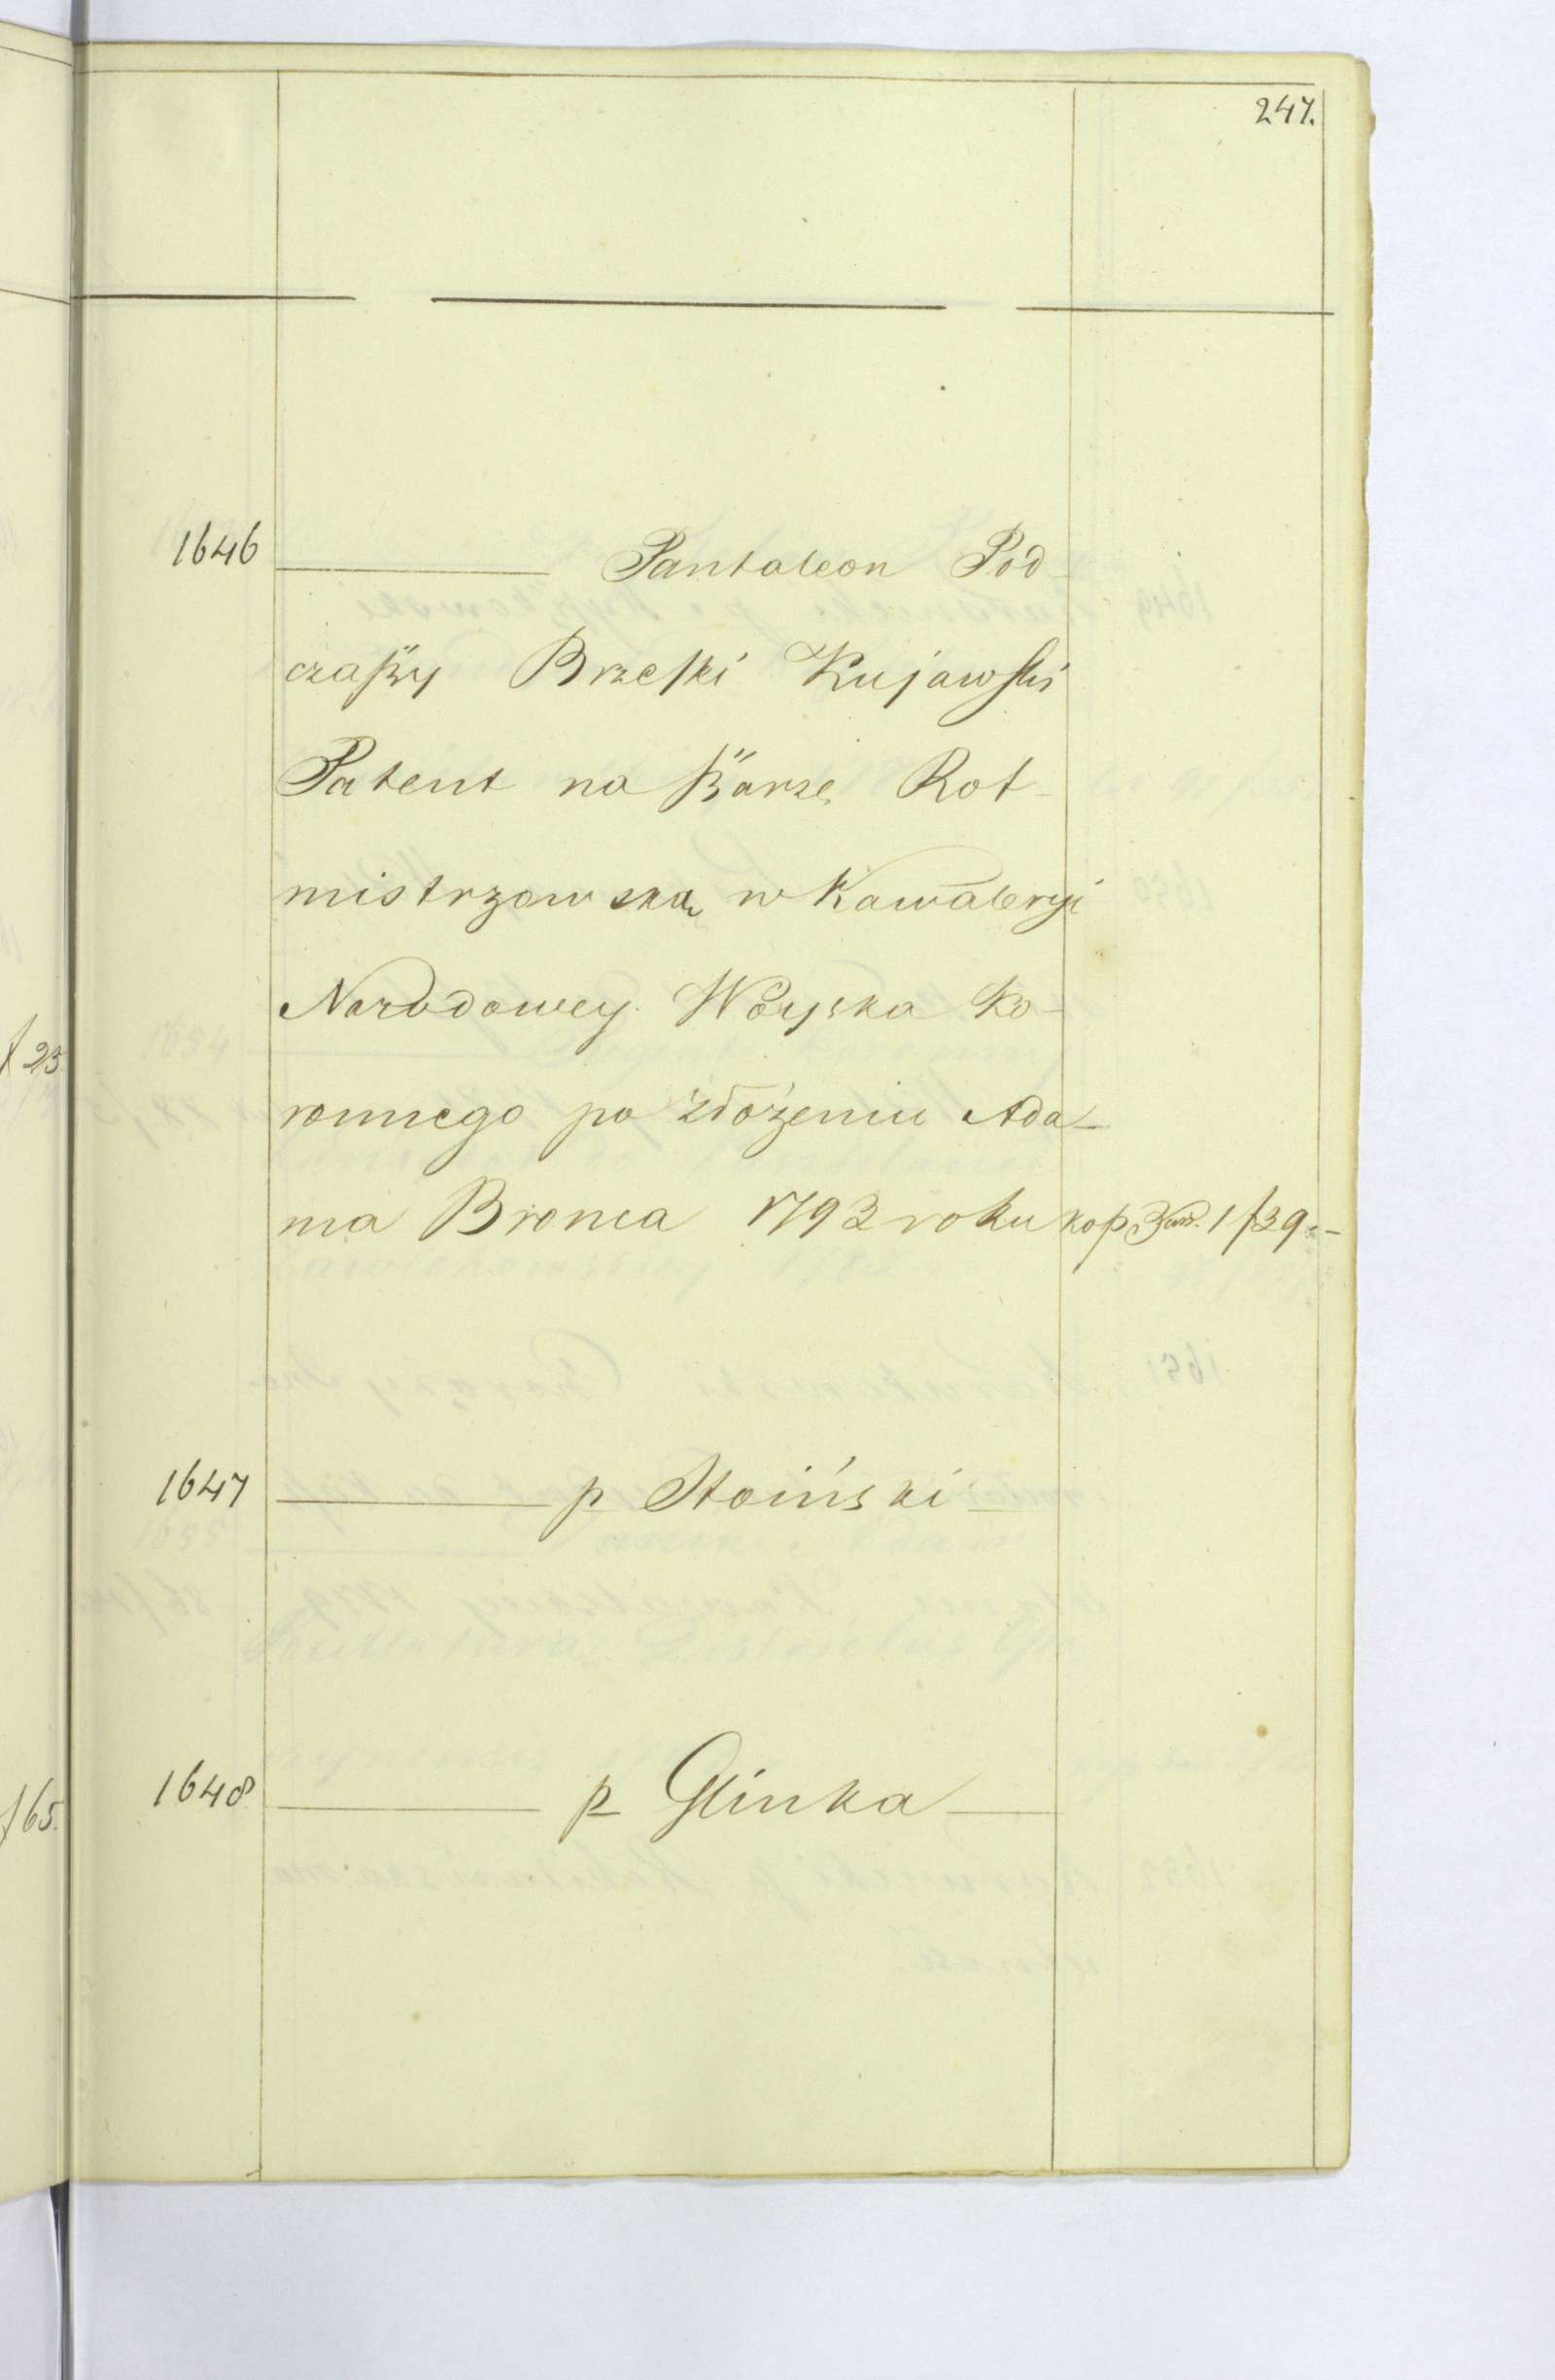 247.
1646 Pantaleon Pod-
czaſzy Brzeſki Kujawſki
Patent na ſzarżę Rot-
mistrzowską w Kawaleryi
Narodowey Woyska Ko-
ronnego po złożeniu Ada-
ma Bronca 1792 roku kop 1 f39.-
f 23
1647 p Stoiński
1648 p Glinka
f 65.